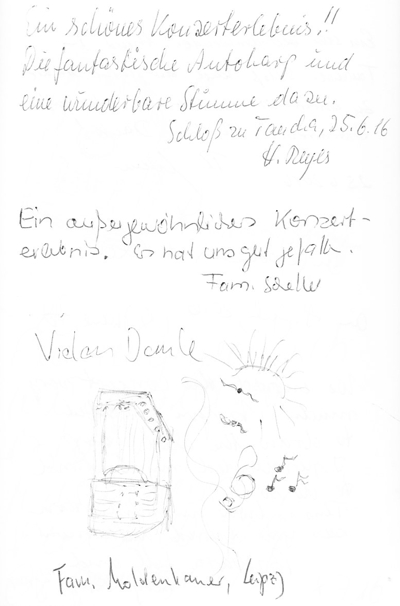 Ein schönes Konzerterlebnis!!
Die fantastische Autoharp und
eine wunderbare Stimme dazu.
Schloß zu Taucha, 25.6.16
H.
Ein außergewöhnliches Konzert-
erlebnis. Es hat uns gut gefallen.
Fam.
Vielen Dank
Fam. Moldenhauer, Leipzig